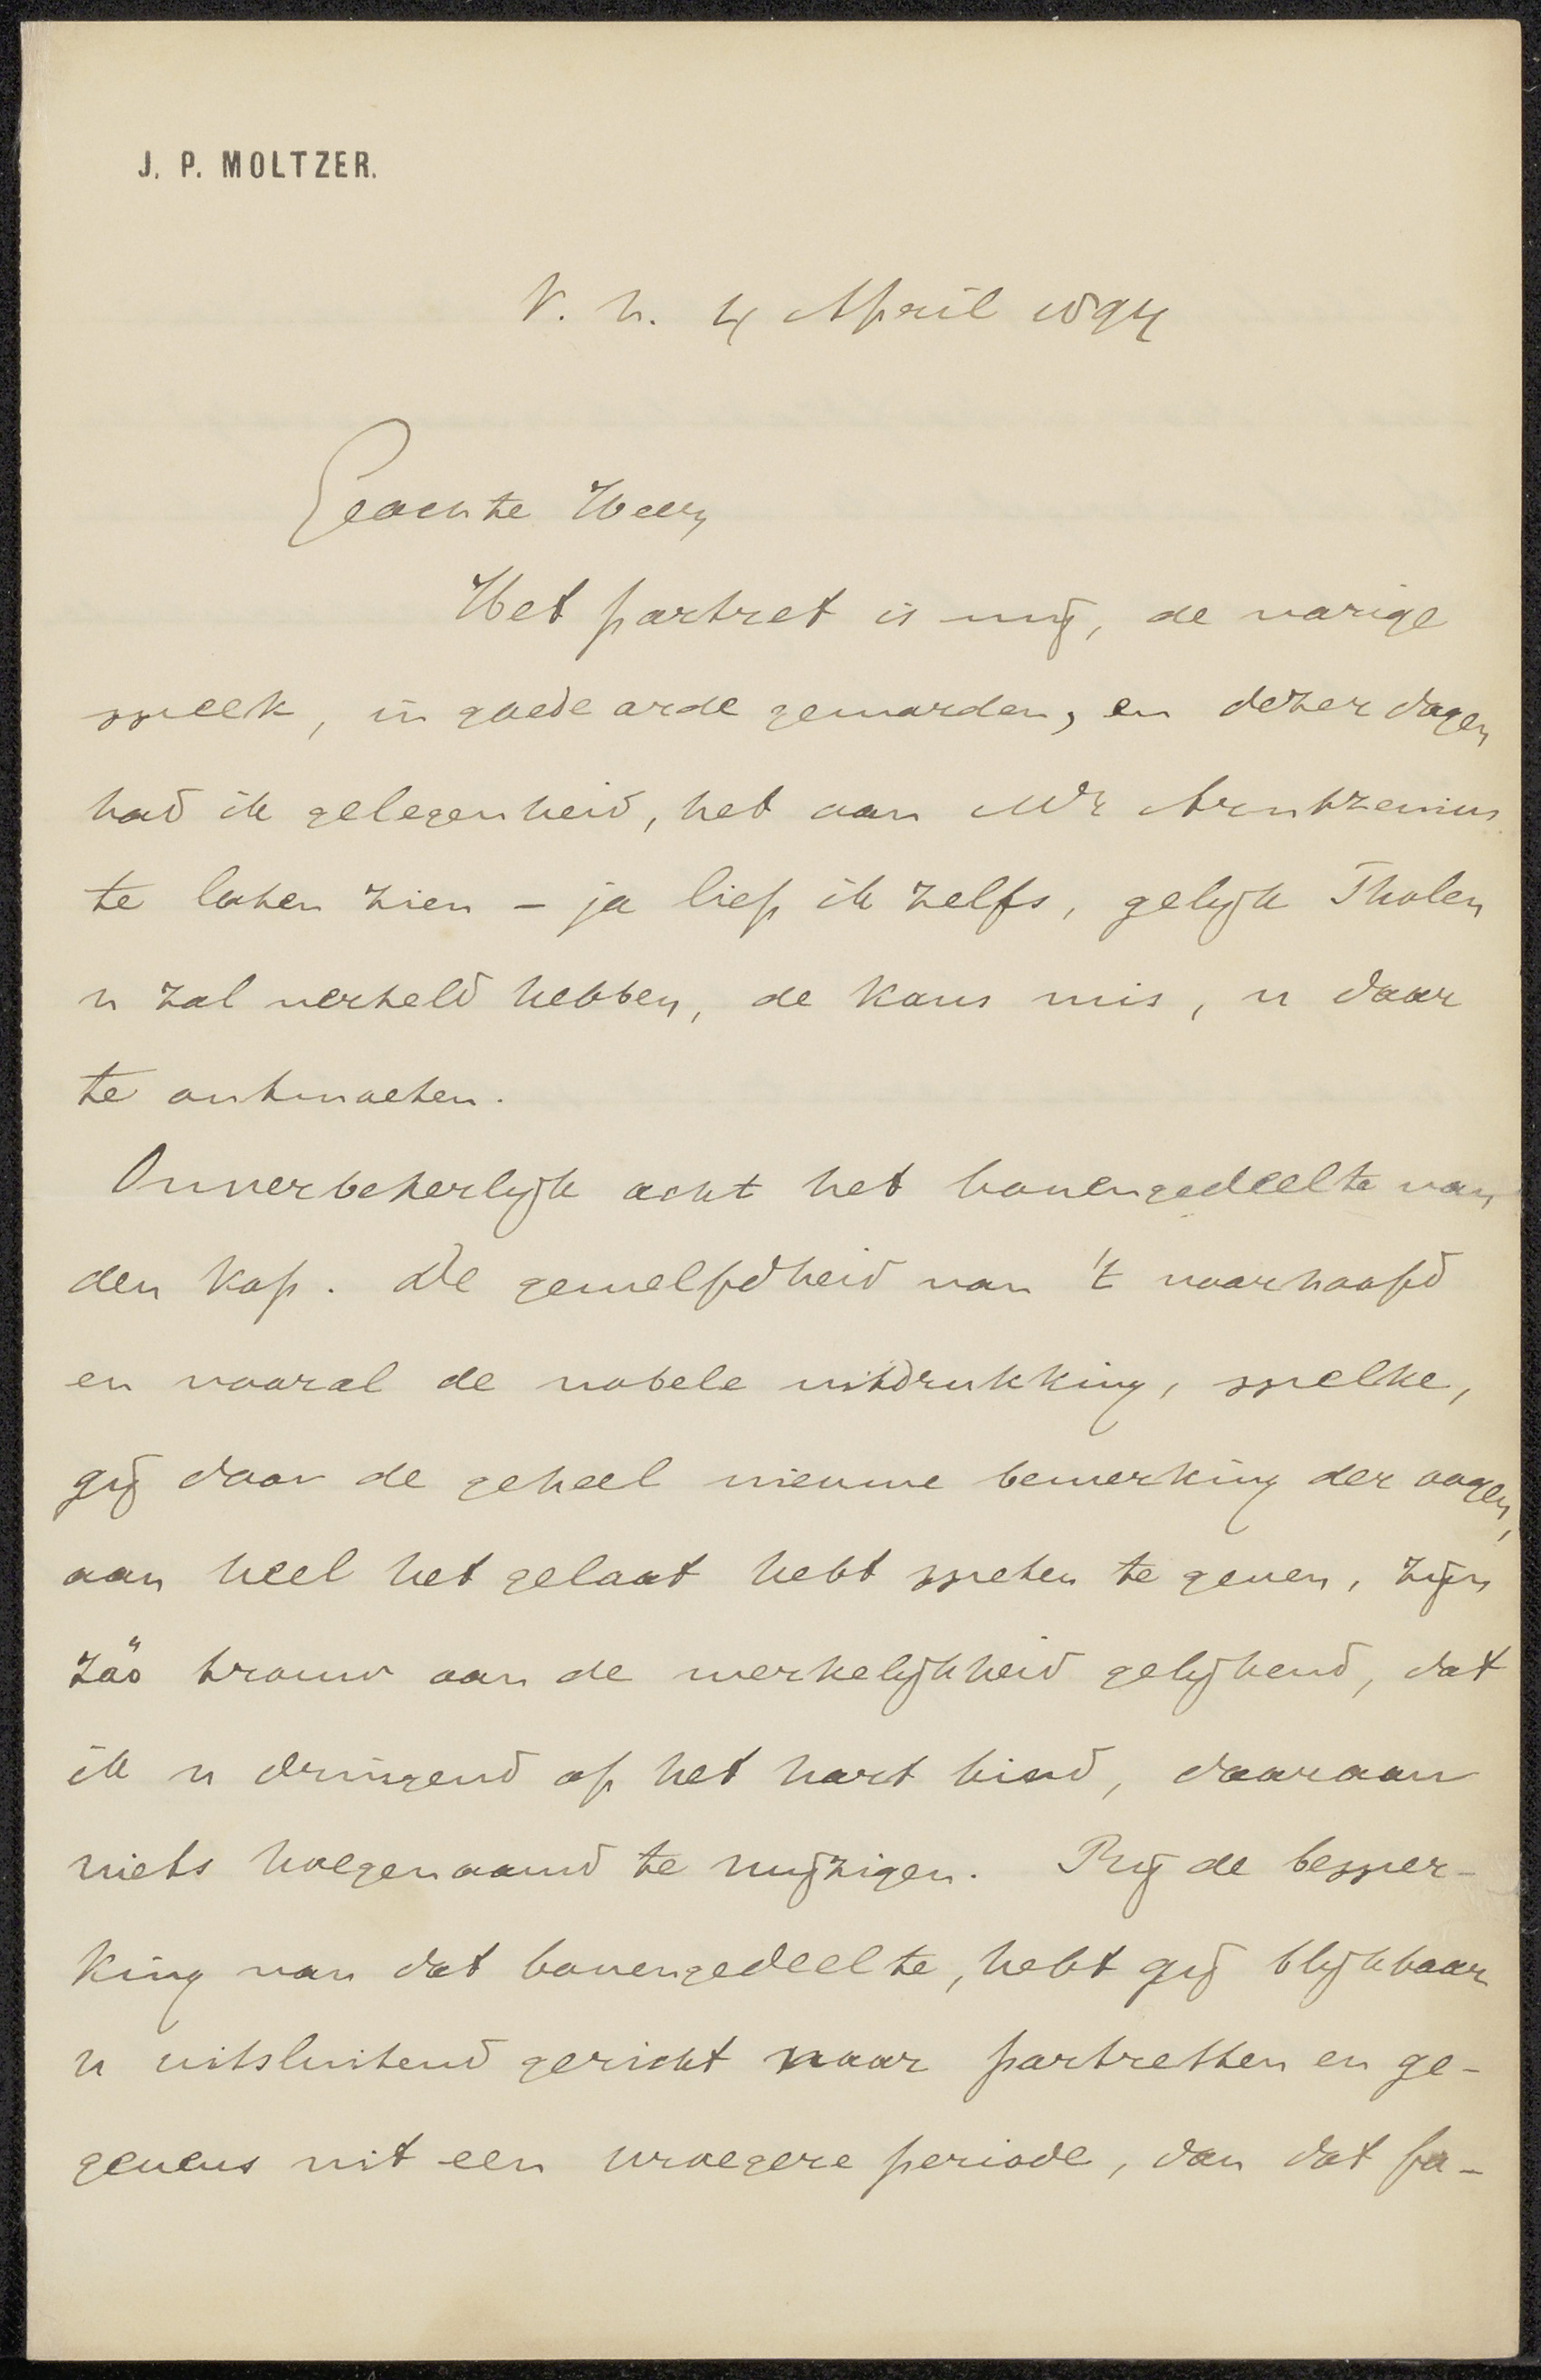 J. P. MOLTZER.
V. h. 4 April 1894
Geachte Heer,
Het portret is mij, de vorige
week, in goede orde geworden, en dezer dagen
had ik gelegenheid, het aan Mr Arntzenius
te laten zien – ja liep ik zelfs, gelijk Tholen
u zal verteld hebben, de kans mis, u daar
te ontmoeten.
Onverbeterlijk acht het bovengedeelte van
den kop. De gewelfdheid van 't voorhoofd
en vooral de nobele uitdrukking, welke,
gij door de geheel nieuwe bewerking der oogen,
aan heel het gelaat hebt weten te geven, zijn
zóó trouw aan de werkelijkheid gelijkend, dat
ik u dringend op het hart bind, daaraan
niets hoegenaamd te wijzigen. Bij de bewer-
king van dat bovengedeelte, hebt gij blijkbaar
u uitsluitend gericht naar portretten en ge-
gevens uit een vroegere periode, dan dat fa-